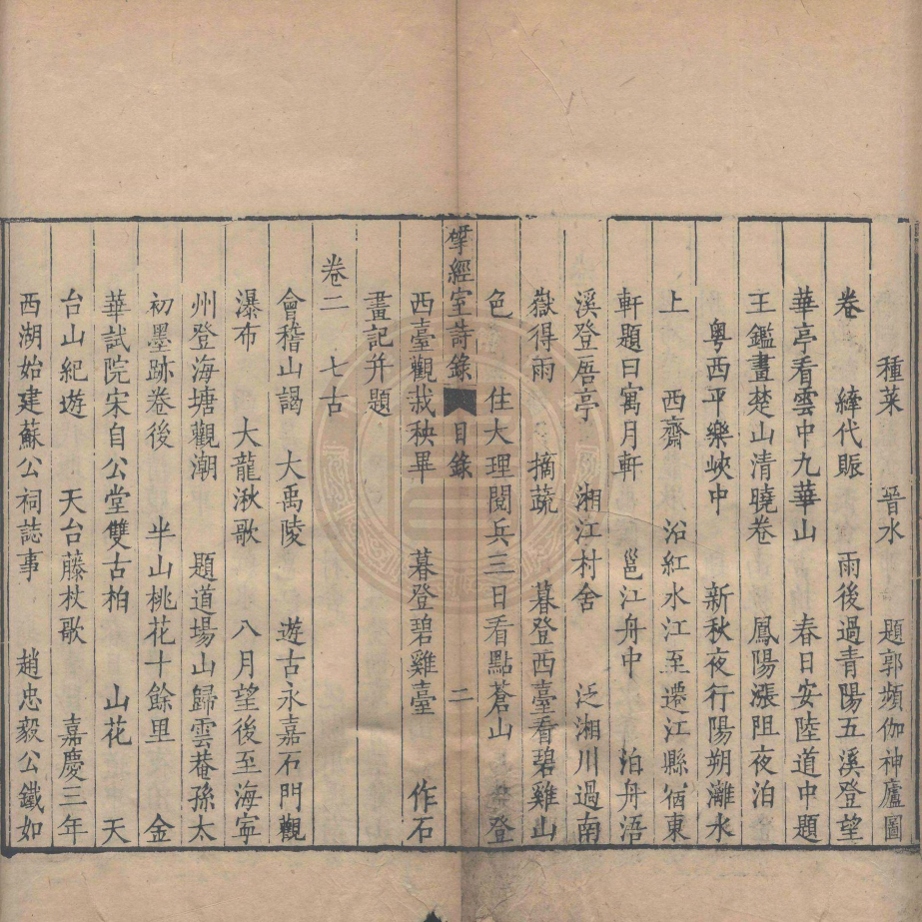 種菜 晉水 題郭頻伽神廬圖
卷 縴代賑 雨後過青陽五溪登望
華亭看雲中九華山 春日安陸道中題
王鑑畫楚山清曉卷 鳳陽漲阻夜泊
粤西平樂峽中 新秋夜行陽朔灕水
上 西齋 浴紅水江至遷江縣宿東
軒題曰寓月軒 邕江舟中 泊舟浯
溪登𢈪亭 湘江村舍 泛湘川過南
嶽得雨 摘蔬 暮登西臺看碧雞山
色 住大理閱兵三日看點蒼山 登
西臺觀栽秧畢 暮登碧雞臺 作石
畫記并題
揅經室詩錄 目錄 二
卷二 七古
會稽山謁 大禹陵 遊古永嘉石門觀
瀑布 大龍湫歌 八月望後至海寧
州登海塘觀潮 題道場山歸雲菴孫太
初墨跡卷後 半山桃花十餘里 金
華試院宋自公堂雙古柏 山花 天
台山紀遊 天台藤杖歌 嘉慶三年
西湖始建蘇公祠誌事 趙忠毅公鐵如